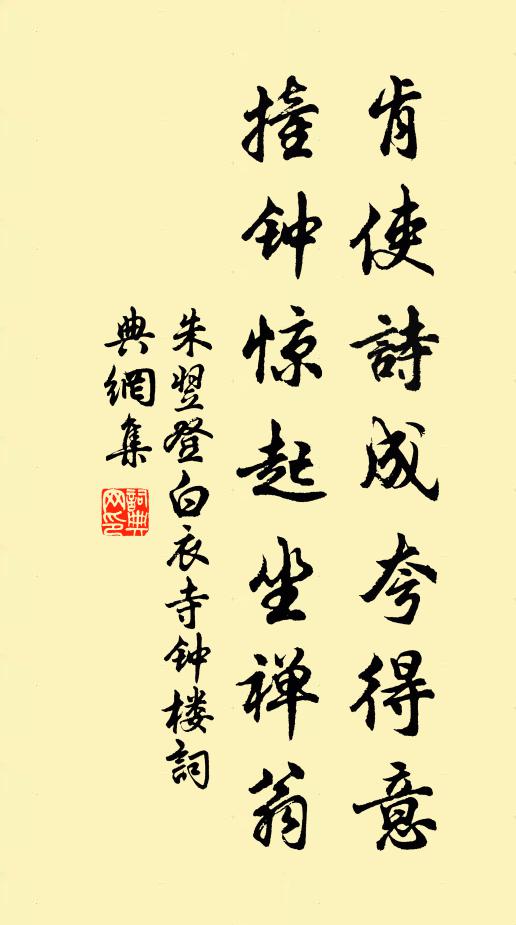 肯使詩成夸得意
撞钟惊起坐禅翁
朱翌登白衣寺钟楼詞
典網集
詞典
网印